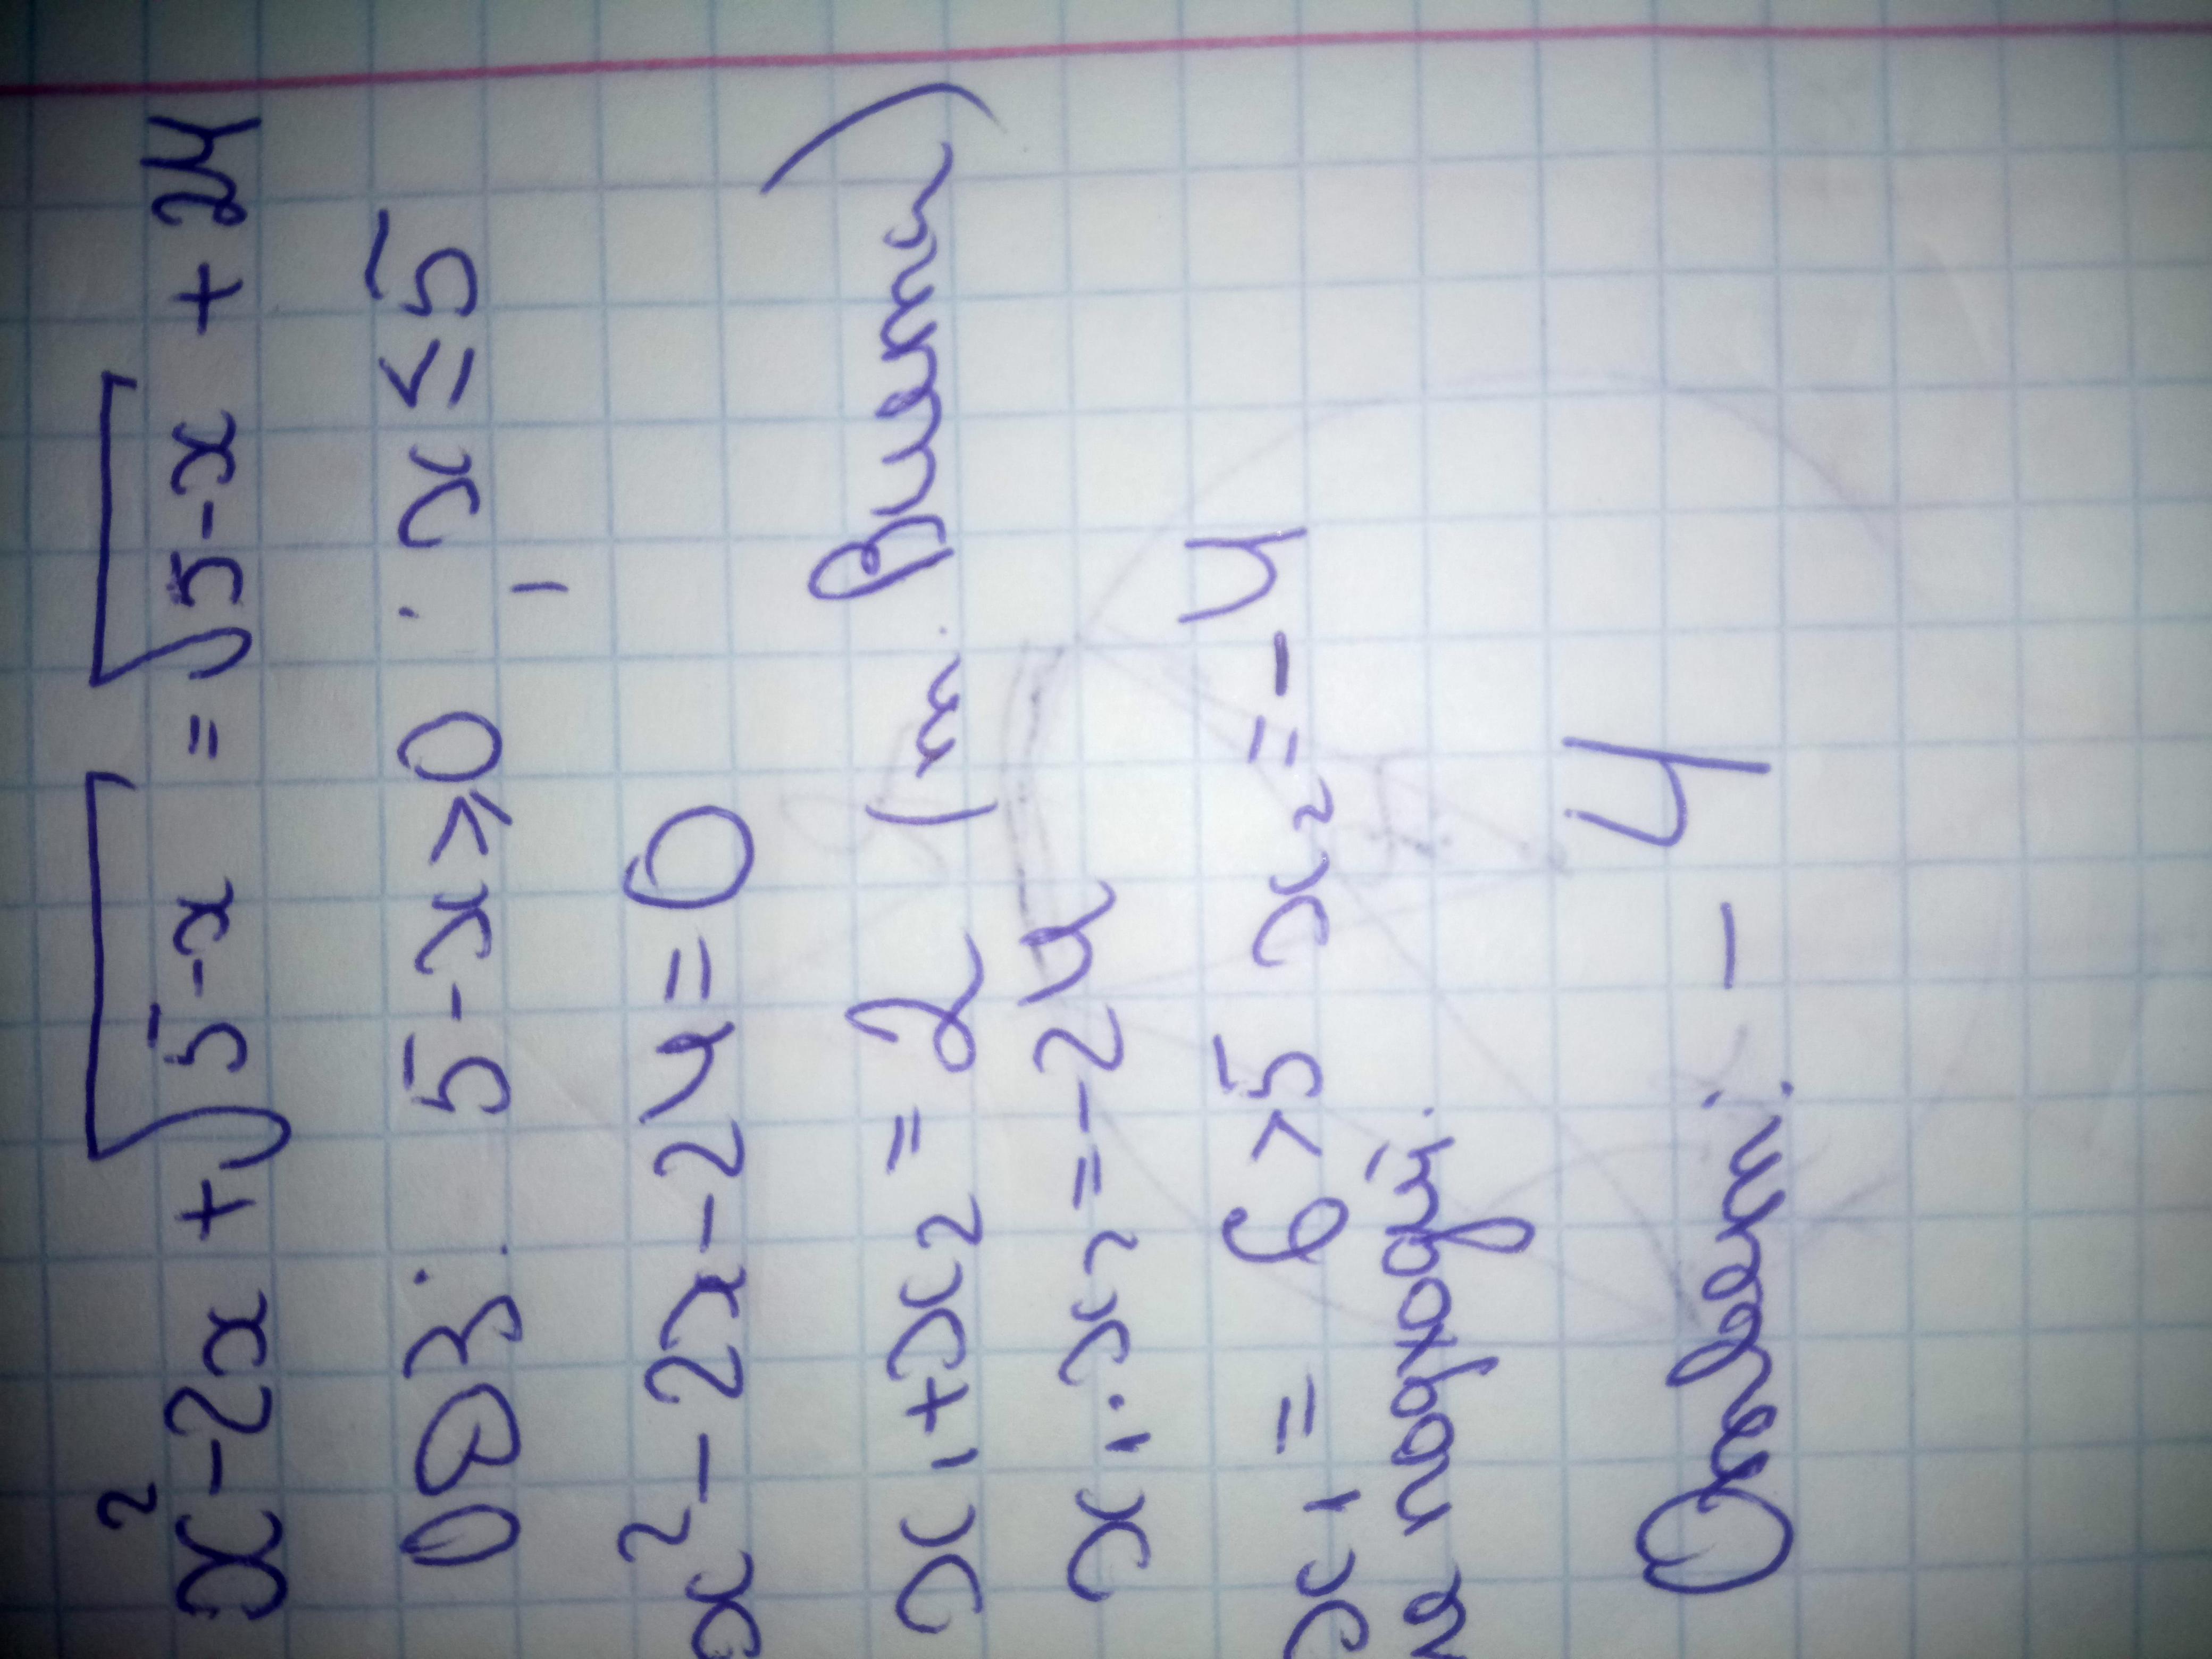 x² - 2x + √5-x = √5-x + 24
ОДЗ: 5-x ≥ 0; x ≤ 5
x² - 2x - 24 = 0
x₁ + x₂ = 2 (т. Виета)
x₁ · x₂ = -24
x₁ = 6 > 5 x₂ = -4
не подходит.
Ответ: -4